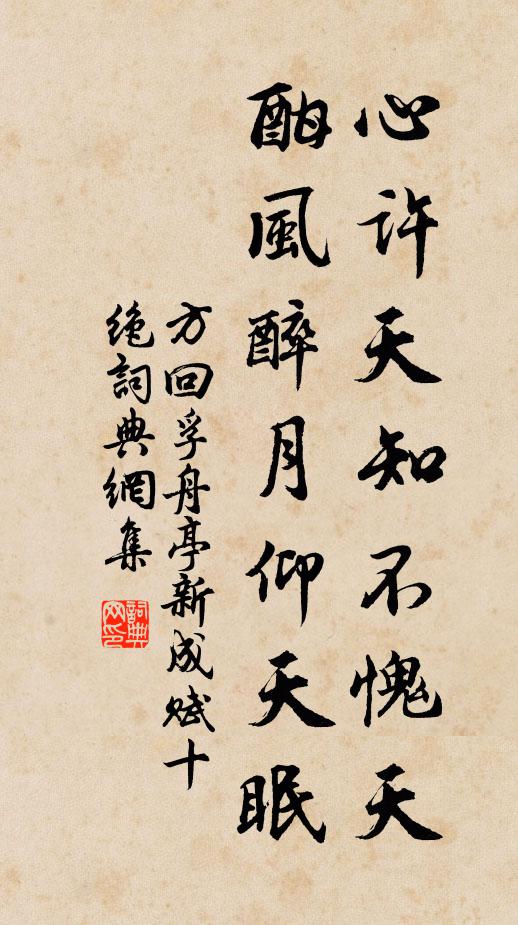 心許天知不愧天
酣風醉月仰天眠
方回孚舟亭新成賦十
絶詞典網集
詞典網印